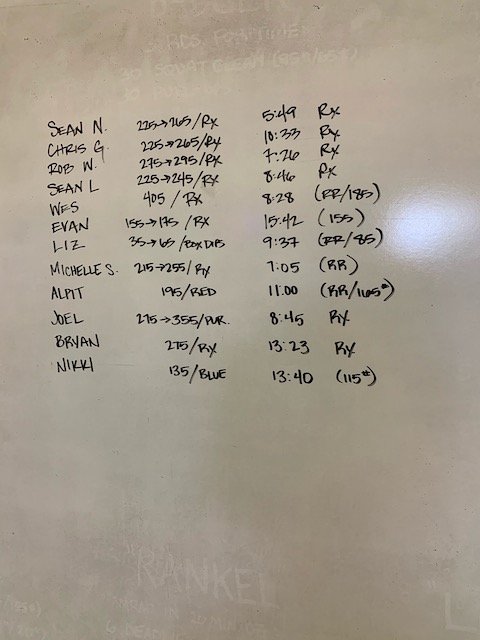 3 RDS. FOR TIME:
30 SQUAT CLEAN (95#/65#)
SEAN N. 225→265/RX 5:49 RX
CHRIS G. 225→265/RX 10:33 RX
ROB W. 275→295/RX 7:26 RX
SEAN L 225→245/RX 8:46 RX
WES 405 / RX 8:28 (RR/185)
EVAN 155→175 / RX 15:42 (155)
LIZ 35→65 /BOX DIPS 9:37 (RR/85)
MICHELLE S. 215→255/RX 7:05 (RR)
ALPIT 195/RED 11:00 (RR/165#)
JOEL 275→355/PUR. 8:45 RX
BRYAN 275/RX 13:23 RX
NIKKI 135/BLUE 13:40 (115#)
"RANKEL
AMRAP IN 20 MIN OF:
6 DEADLIFT